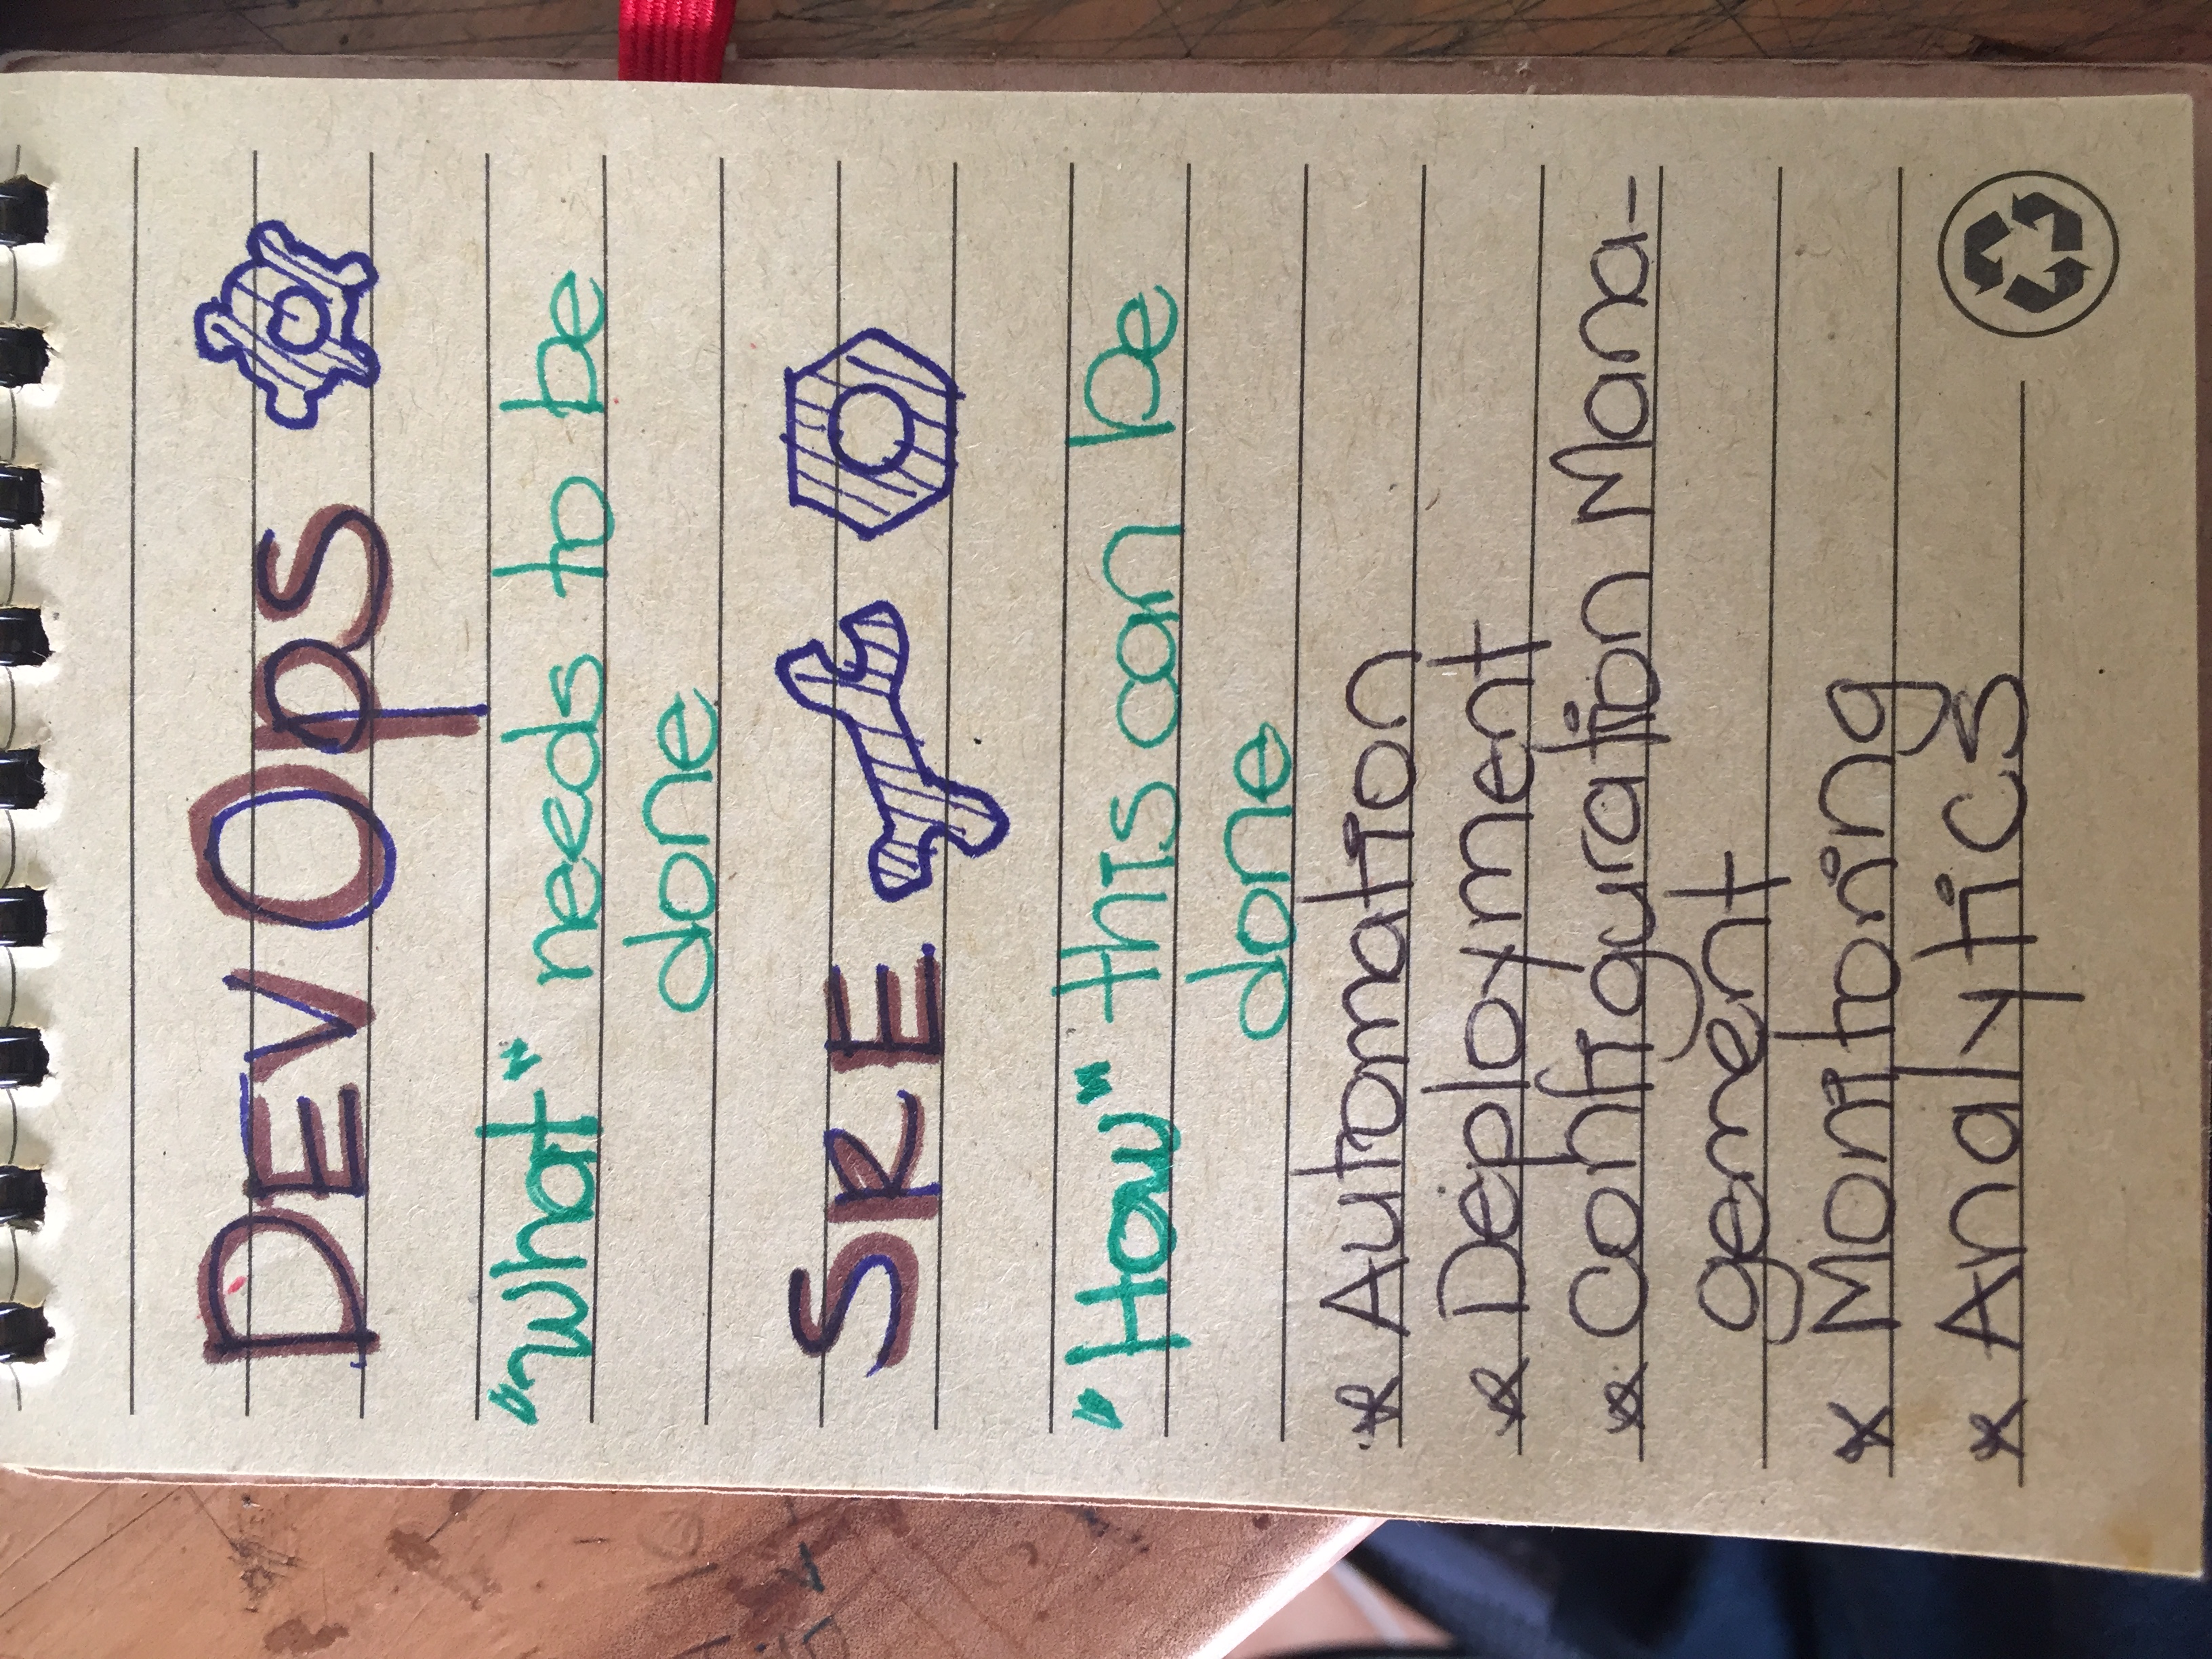 DEVOps
"What" needs to be
done
SRE
"How" this can be
done
* Automation
* Deployment
* Configuration Mana-
gement
* Monitoring
* Analytics